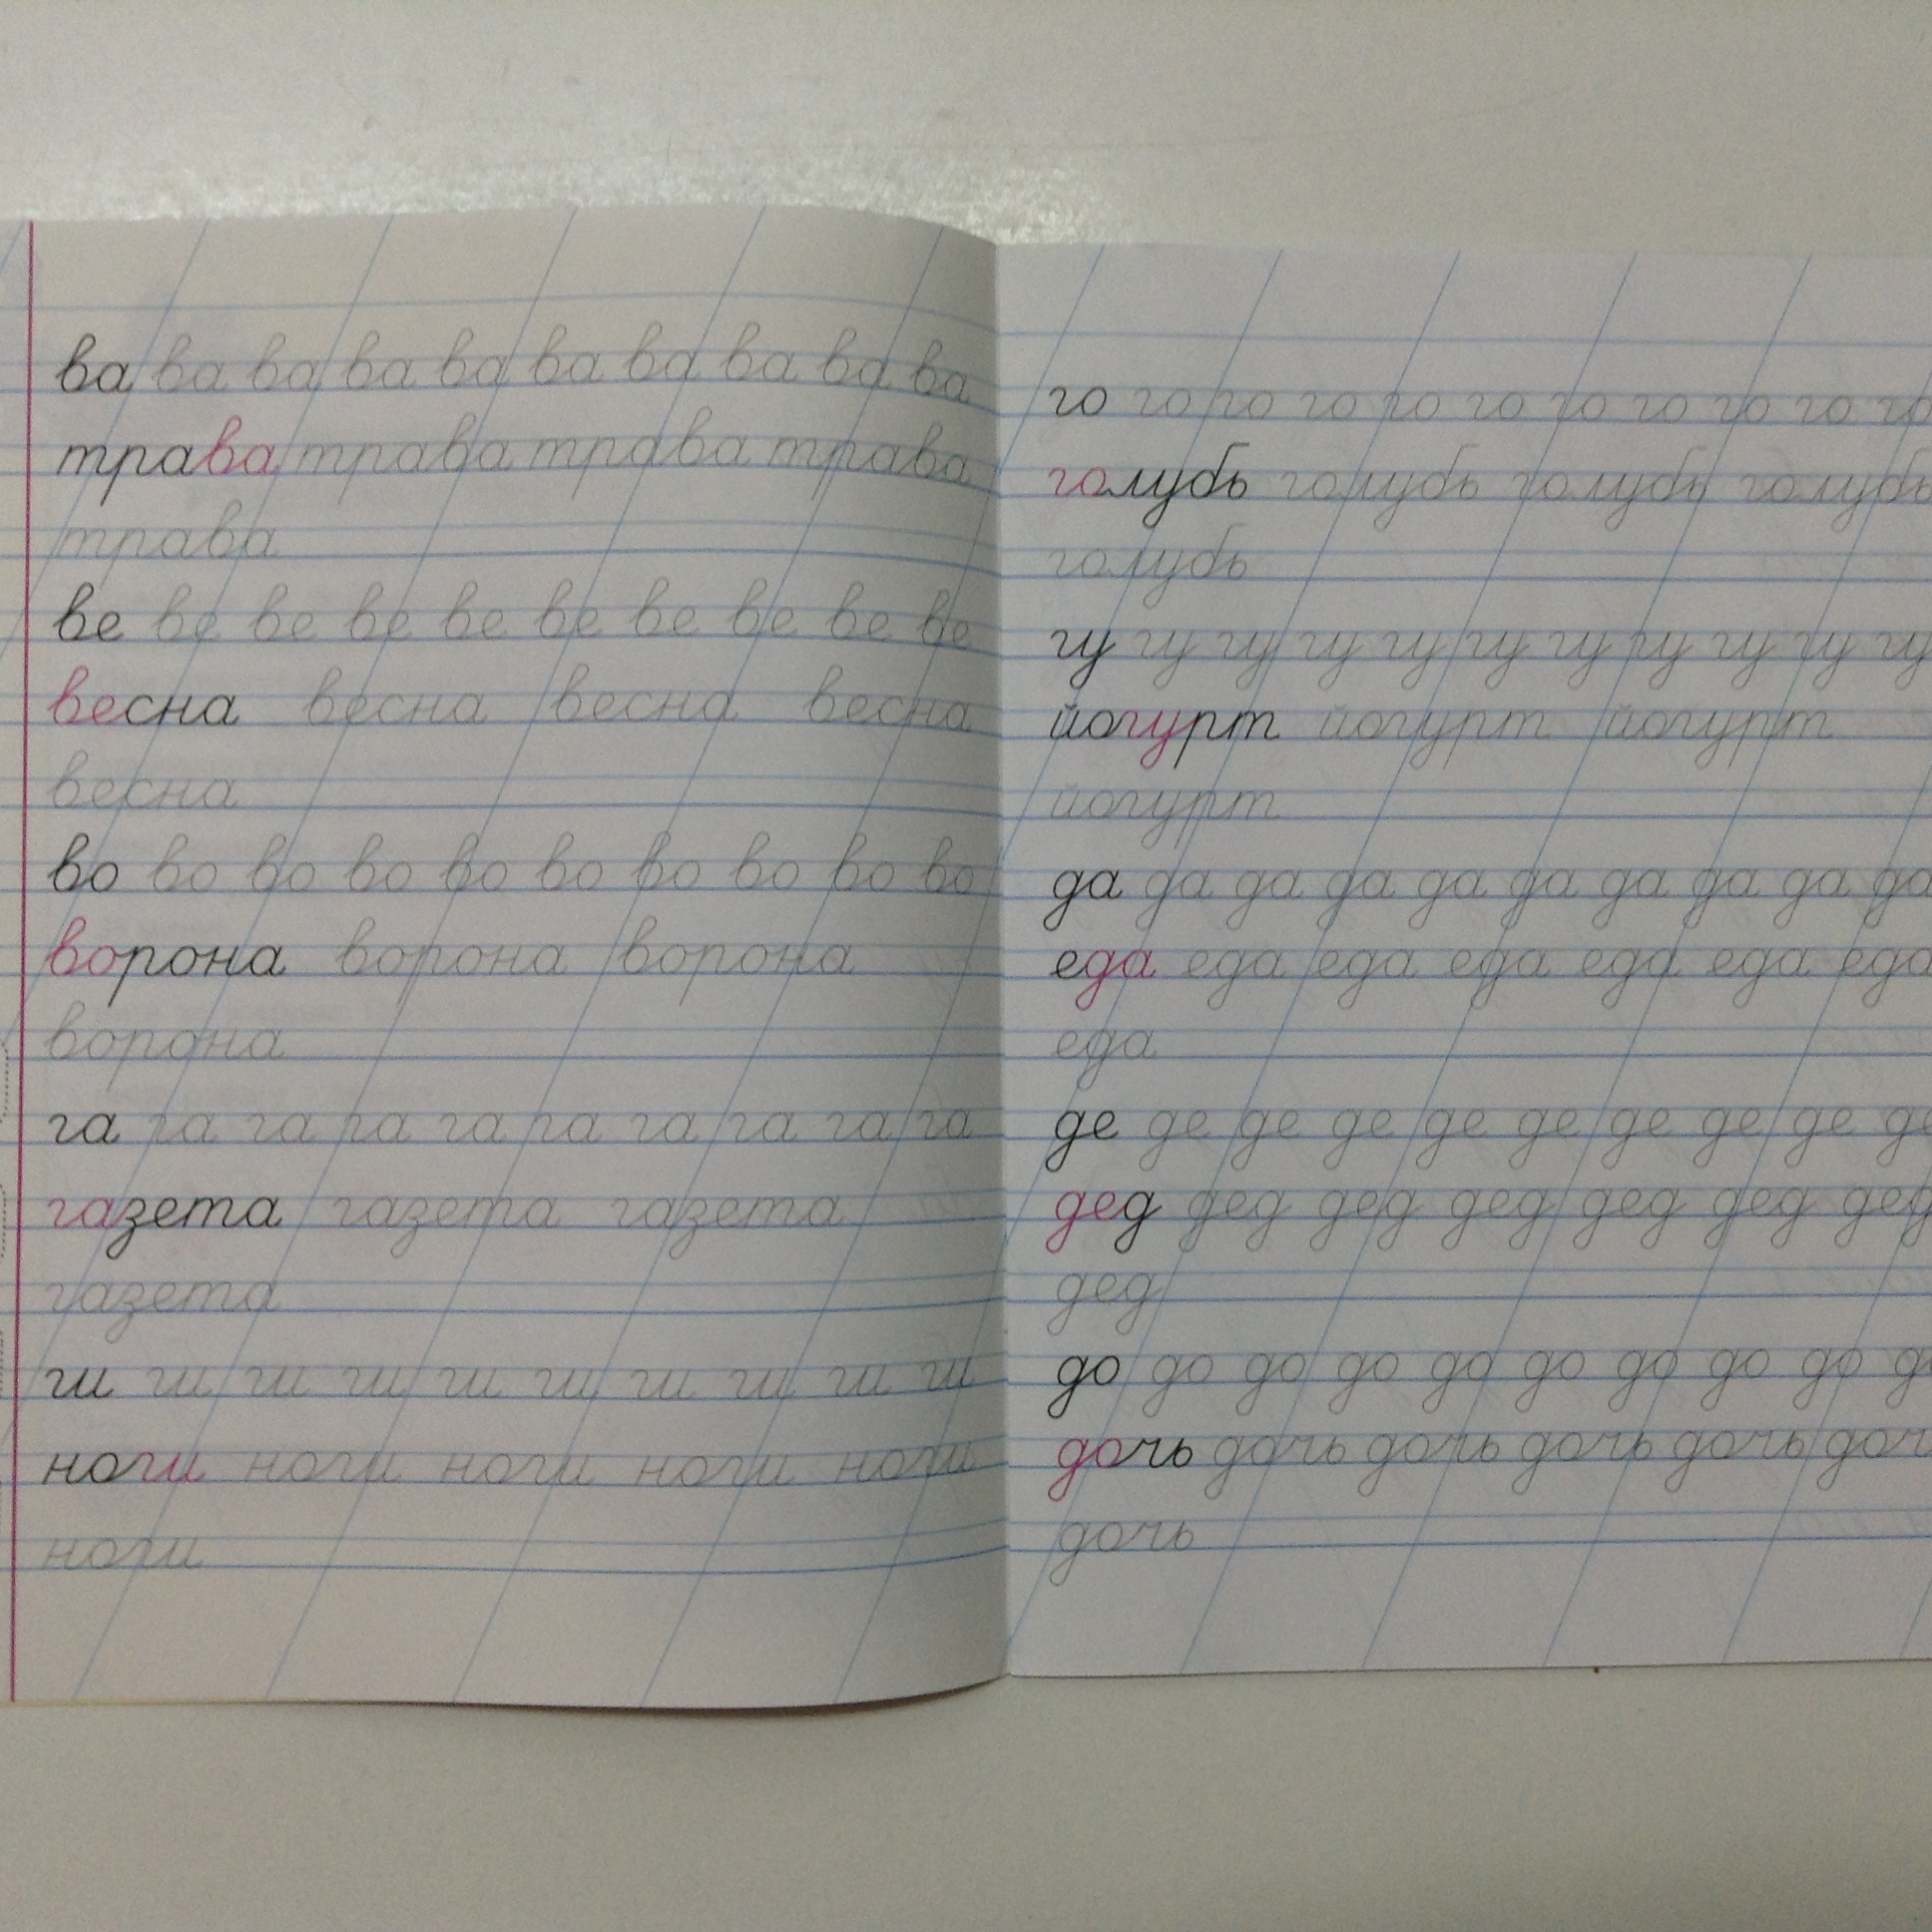 ва ва ва ва ва ва ва ва ва ва
трава трава трава трава
трава
ве ве ве ве ве ве ве ве ве ве
весна весна весна весна
весна
во во во во во во во во во во
ворона ворона ворона
ворона
га га га га га га га га га га
газета газета газета
газета
ги ги ги ги ги ги ги ги ги ги
ноги ноги ноги ноги ноги
ноги
го го го го го го го го го го го
голубь голубь голубь голубь
голубь
гу гу гу гу гу гу гу гу гу гу гу
йогурт йогурт йогурт
йогурт
да да да да да да да да да да
еда еда еда еда еда еда еда
еда
де де де де де де де де де де
дед дед дед дед дед дед дед
дед
до до до до до до до до до
дочь дочь дочь дочь дочь
дочь